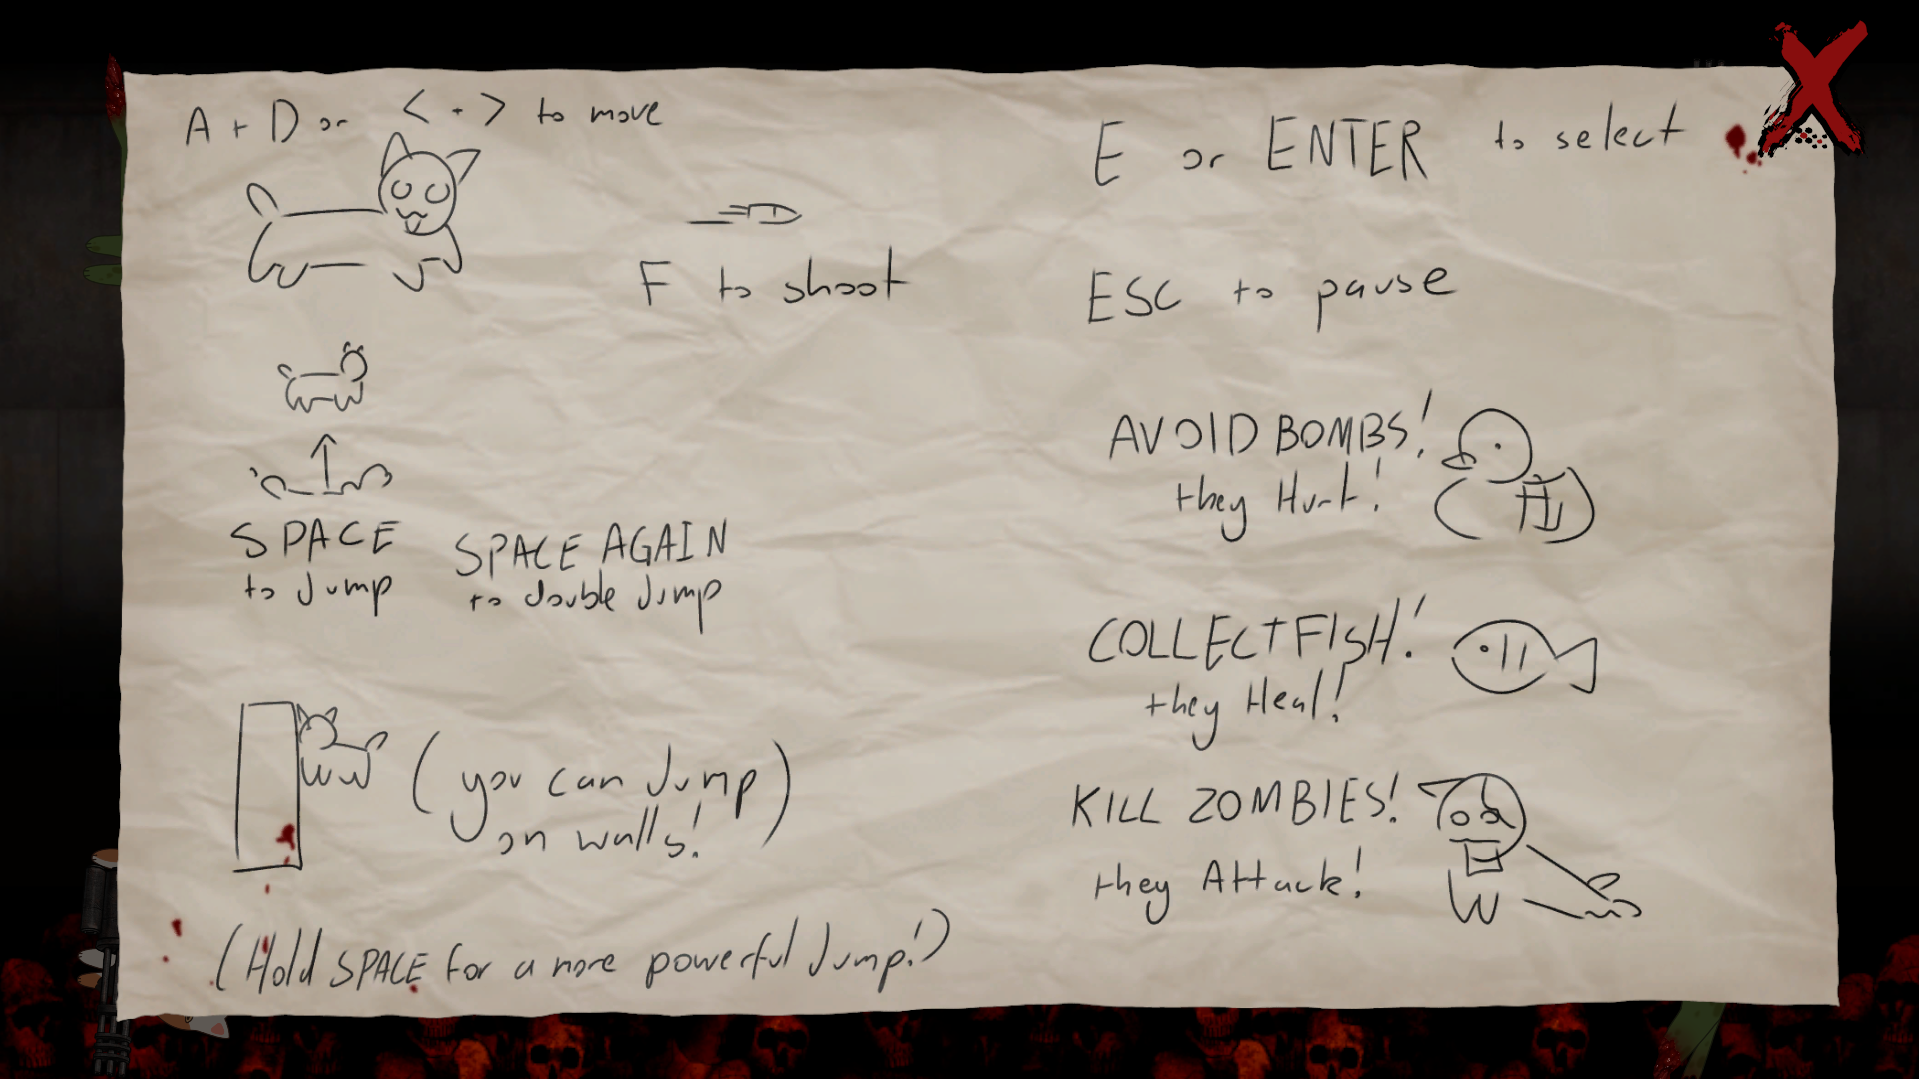 A + D or < - > to move
F to shoot
SPACE
to Jump
SPACE AGAIN
to double Jump
(you can Jump
on walls!)
(Hold SPACE for a more powerful Jump!)
E or ENTER to select
ESC to pause
AVOID BOMBS!
they Hurt!
COLLECT FISH!
they Heal!
KILL ZOMBIES!
they Attack!